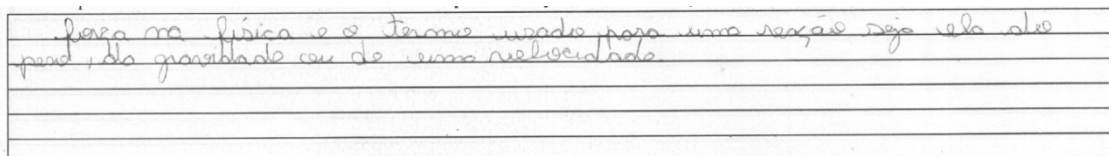 força na física e o termo usado para uma reação seja ela do
peso, da gravidade ou de uma velocidade.